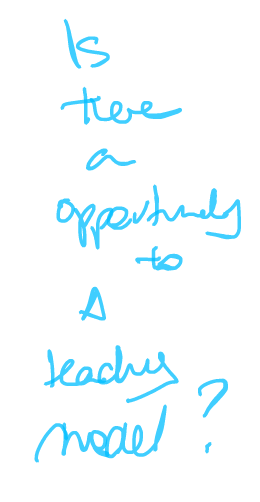 Is
there
a
opportunity
to
A
teaching
model ?